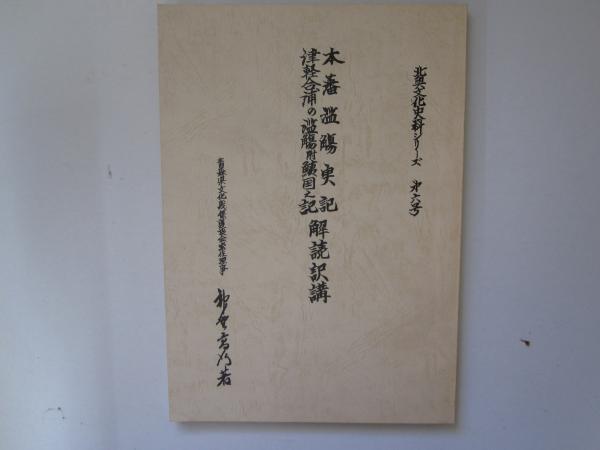 北奥文化史料シリーズ 第六号
本藩濫觴実記
津軽合浦の濫觴附鰊国之記
解読訳講
青森県文化財保護協会常任理事
著